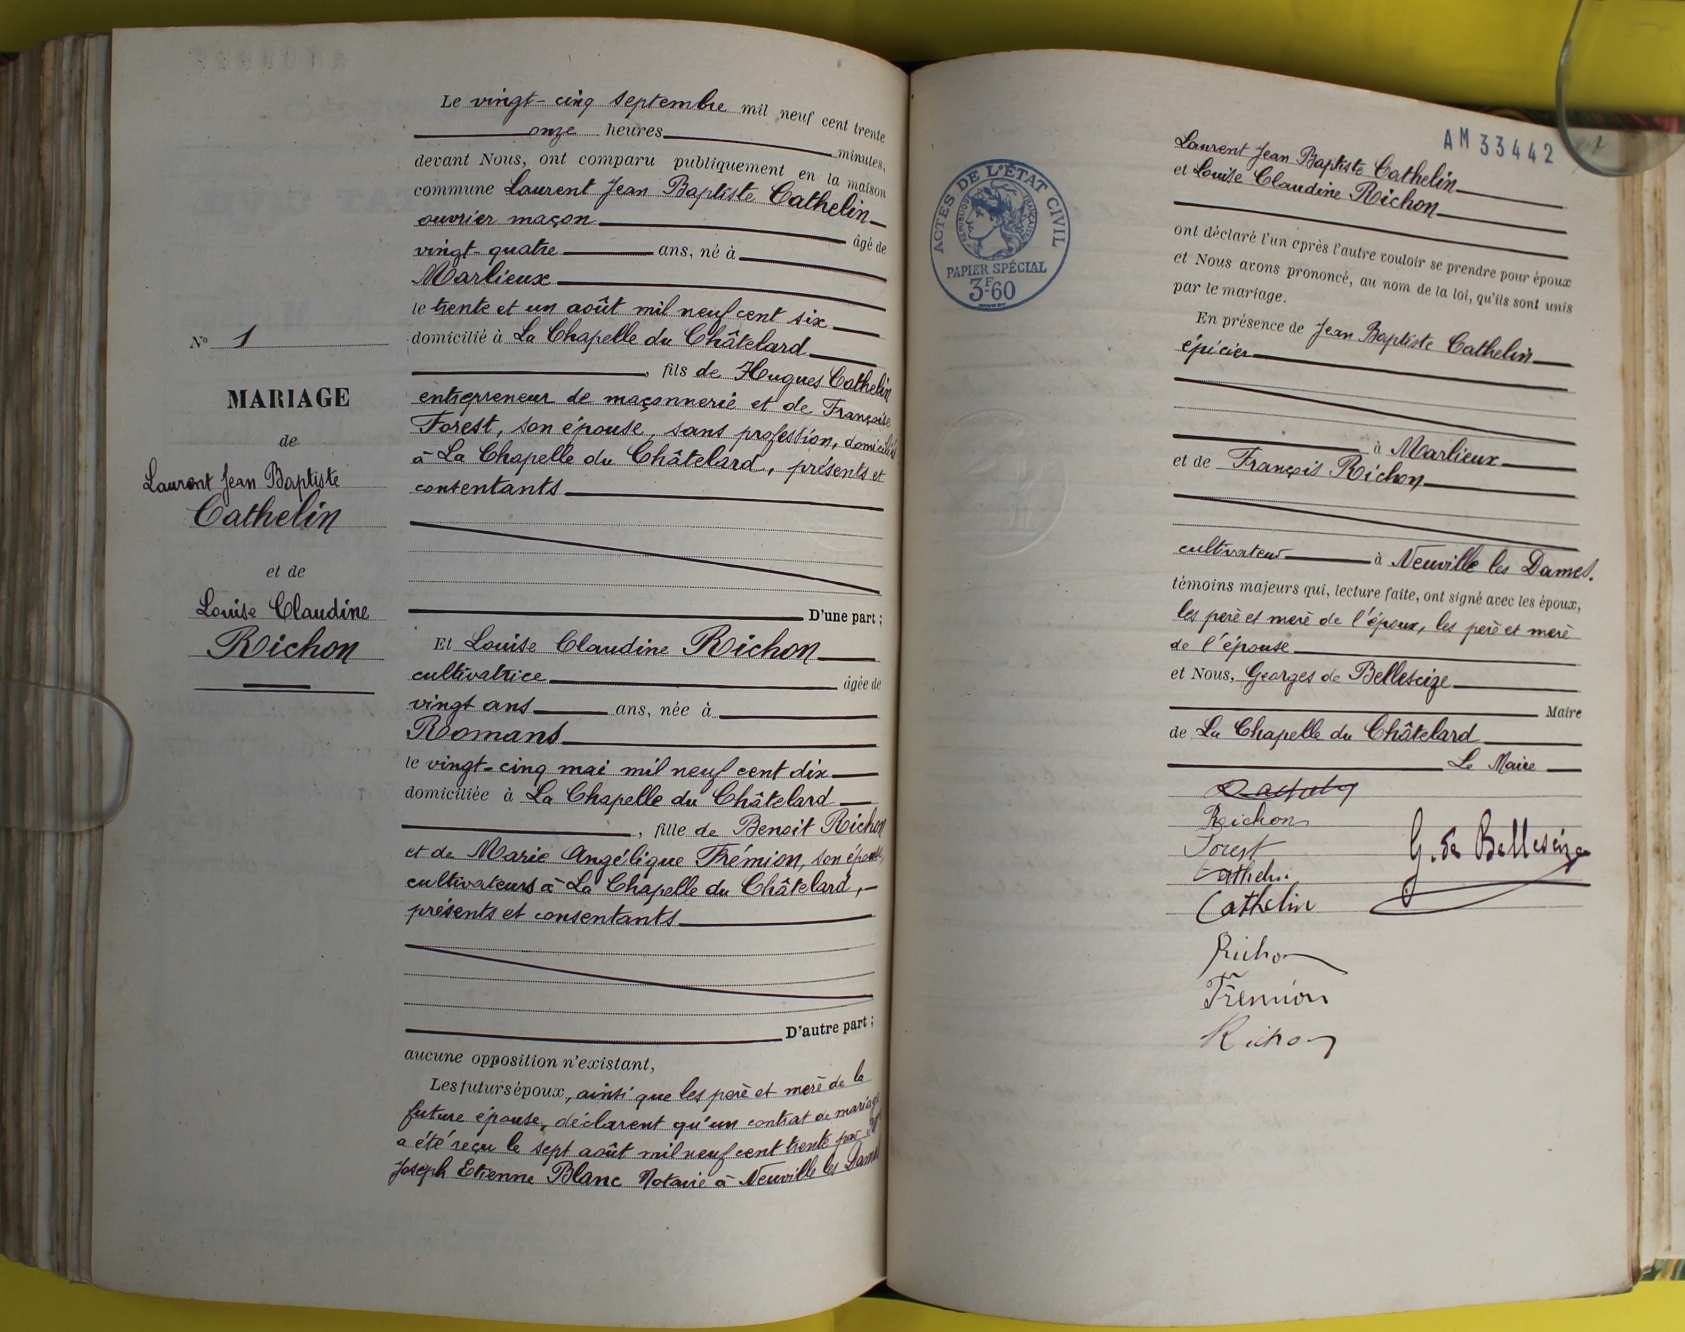 Le vingt-cinq septembre mil neuf cent trente
onze heures minutes,
devant Nous, ont comparu publiquement en la maison
commune Laurent Jean Baptiste Cathelin
ouvrier maçon âgé de
vingt-quatre ans, né à
Marlieux
le trente et un août mil neuf cent six
domicilié à La Chapelle du Châtelard
, fils de Hugues Cathelin
entrepreneur de maçonnerie et de Françoise
Forest, son épouse, sans profession, domiciliés
à La Chapelle du Châtelard, présents et
consentants
D'une part ;
Nº 1
MARIAGE
de
Laurent Jean Baptiste
Cathelin
et de
Louise Claudine
Richon
Et Louise Claudine Richon
cultivatrice âgée de
vingt ans ans, née à
Romans
le vingt-cinq mai mil neuf cent dix
domiciliée à La Chapelle du Châtelard
, fille de Benoit Richon
et de Marie Angélique Frémion, son épouse,
cultivateurs à La Chapelle du Châtelard,
présents et consentants
D'autre part ;
aucune opposition n'existant,
Les futurs époux, ainsi que les père et mère de la
future épouse, déclarent qu'un contrat de mariage
a été reçu le sept août mil neuf cent trente par
Joseph Etienne Blanc Notaire à Neuville les Dames
AM 33442
ACTES DE L'ÉTAT CIVIL
RÉPUBLIQUE FRANÇAISE
PAPIER SPÉCIAL
3F60
Laurent Jean Baptiste Cathelin
et Louise Claudine Richon
ont déclaré l'un après l'autre vouloir se prendre pour époux
et Nous avons prononcé, au nom de la loi, qu'ils sont unis
par le mariage.
En présence de Jean Baptiste Cathelin
épicier
à Marlieux
et de François Richon
cultivateur à Neuville les Dames.
témoins majeurs qui, lecture faite, ont signé avec les époux,
les père et mère de l'époux, les père et mère
de l'épouse
et Nous, Georges de Bellescize
Maire
de La Chapelle du Châtelard
Le Maire
Richon
Forest
Cathelin
Cathelin
G. de Bellescize
Richon
Frémion
Richon